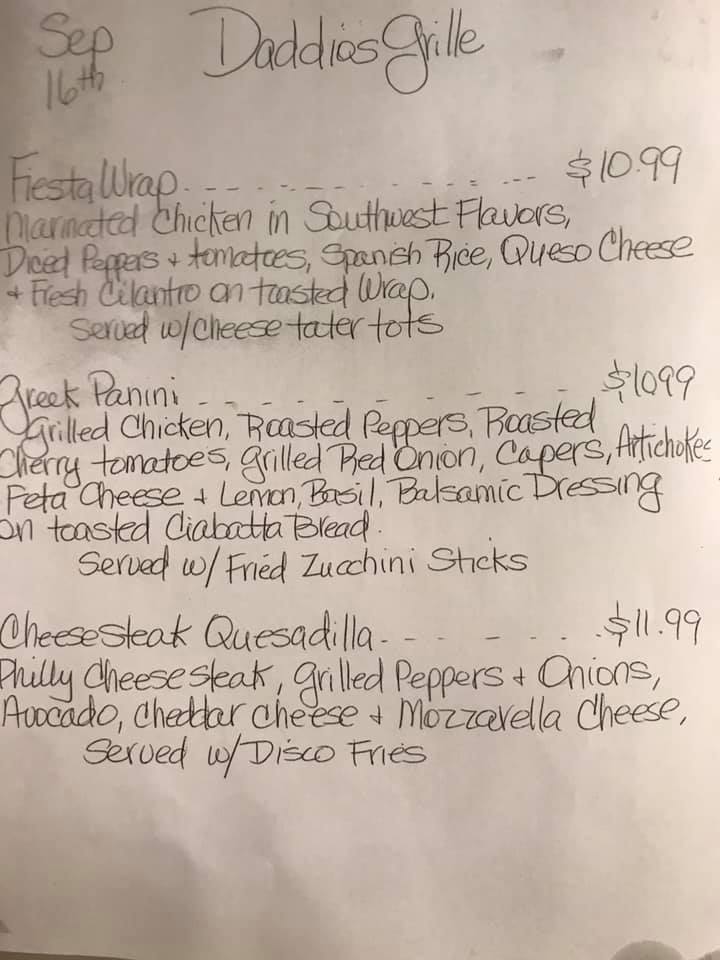 Sep
16th
Daddios Grille
Fiesta Wrap - - - - - - - - - - - - $10.99
Marinated Chicken in Southwest Flavors,
Diced Peppers + tomatoes, Spanish Rice, Queso Cheese
+ Fresh Cilantro on toasted Wrap.
Served w/cheese tater tots
Greek Panini - - - - - - - - - $1099
Grilled Chicken, Roasted Peppers, Roasted
Cherry tomatoes, grilled Red Onion, Capers, Artichokes
Feta Cheese + Lemon, Basil, Balsamic Dressing
on toasted Ciabatta Bread.
Served w/ Fried Zucchini Sticks
Cheesesteak Quesadilla - - - - - - - $11.99
Philly Cheesesteak, grilled Peppers + Onions,
Avocado, Cheddar cheese + Mozzarella Cheese,
Served w/ Disco Fries